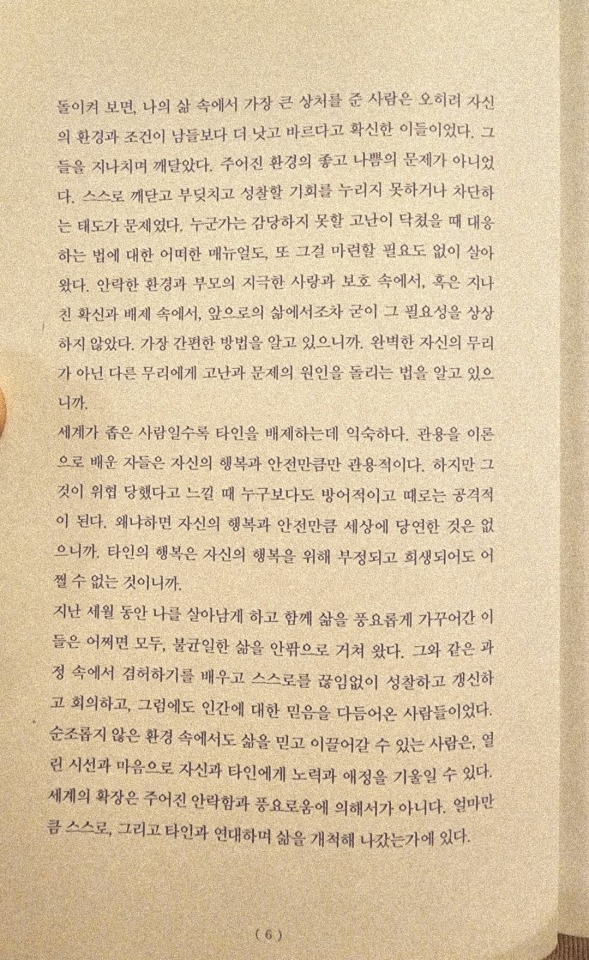 돌이켜 보면, 나의 삶 속에서 가장 큰 상처를 준 사람은 오히려 자신
의 환경과 조건이 남들보다 더 낫고 바르다고 확신한 이들이었다. 그
들을 지나치며 깨달았다. 주어진 환경의 좋고 나쁨의 문제가 아니었
다. 스스로 깨닫고 부딪치고 성찰할 기회를 누리지 못하거나 차단하
는 태도가 문제였다. 누군가는 감당하지 못할 고난이 닥쳤을 때 대응
하는 법에 대한 어떠한 메뉴얼도, 또 그걸 마련할 필요도 없이 살아
왔다. 안락한 환경과 부모의 지극한 사랑과 보호 속에서, 혹은 지나
친 확신과 배제 속에서, 앞으로의 삶에서조차 굳이 그 필요성을 상상
하지 않았다. 가장 간편한 방법을 알고 있으니까. 완벽한 자신의 무리
가 아닌 다른 무리에게 고난과 문제의 원인을 돌리는 법을 알고 있으
니까.
세계가 좁은 사람일수록 타인을 배제하는데 익숙하다. 관용을 이론
으로 배운 자들은 자신의 행복과 안전만큼만 관용적이다. 하지만 그
것이 위협 당했다고 느낄 때 누구보다도 방어적이고 때로는 공격적
이 된다. 왜냐하면 자신의 행복과 안전만큼 세상에 당연한 것은 없
으니까. 타인의 행복은 자신의 행복을 위해 부정되고 희생되어도 어
쩔 수 없는 것이니까.
지난 세월 동안 나를 살아남게 하고 함께 삶을 풍요롭게 가꾸어간 이
들은 어쩌면 모두, 불균일한 삶을 안팎으로 거쳐 왔다. 그와 같은 과
정 속에서 겸허하기를 배우고 스스로를 끊임없이 성찰하고 갱신하
고 회의하고, 그럼에도 인간에 대한 믿음을 다듬어온 사람들이었다.
순조롭지 않은 환경 속에서도 삶을 믿고 이끌어갈 수 있는 사람은, 열
린 시선과 마음으로 자신과 타인에게 노력과 애정을 기울일 수 있다.
세계의 확장은 주어진 안락함과 풍요로움에 의해서가 아니다. 얼마만
큼 스스로, 그리고 타인과 연대하며 삶을 개척해 나갔는가에 있다.
( 6 )